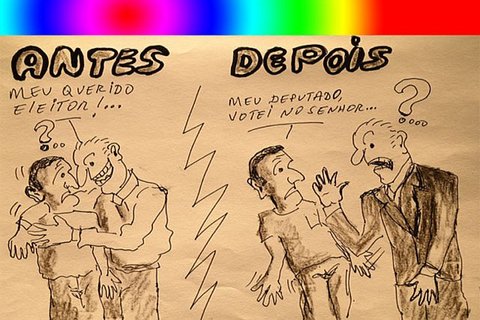 ANTES
MEU QUERIDO
ELEITOR!...
?...
DEPOIS
MEU DEPUTADO,
VOTEI NO SENHOR...
?...